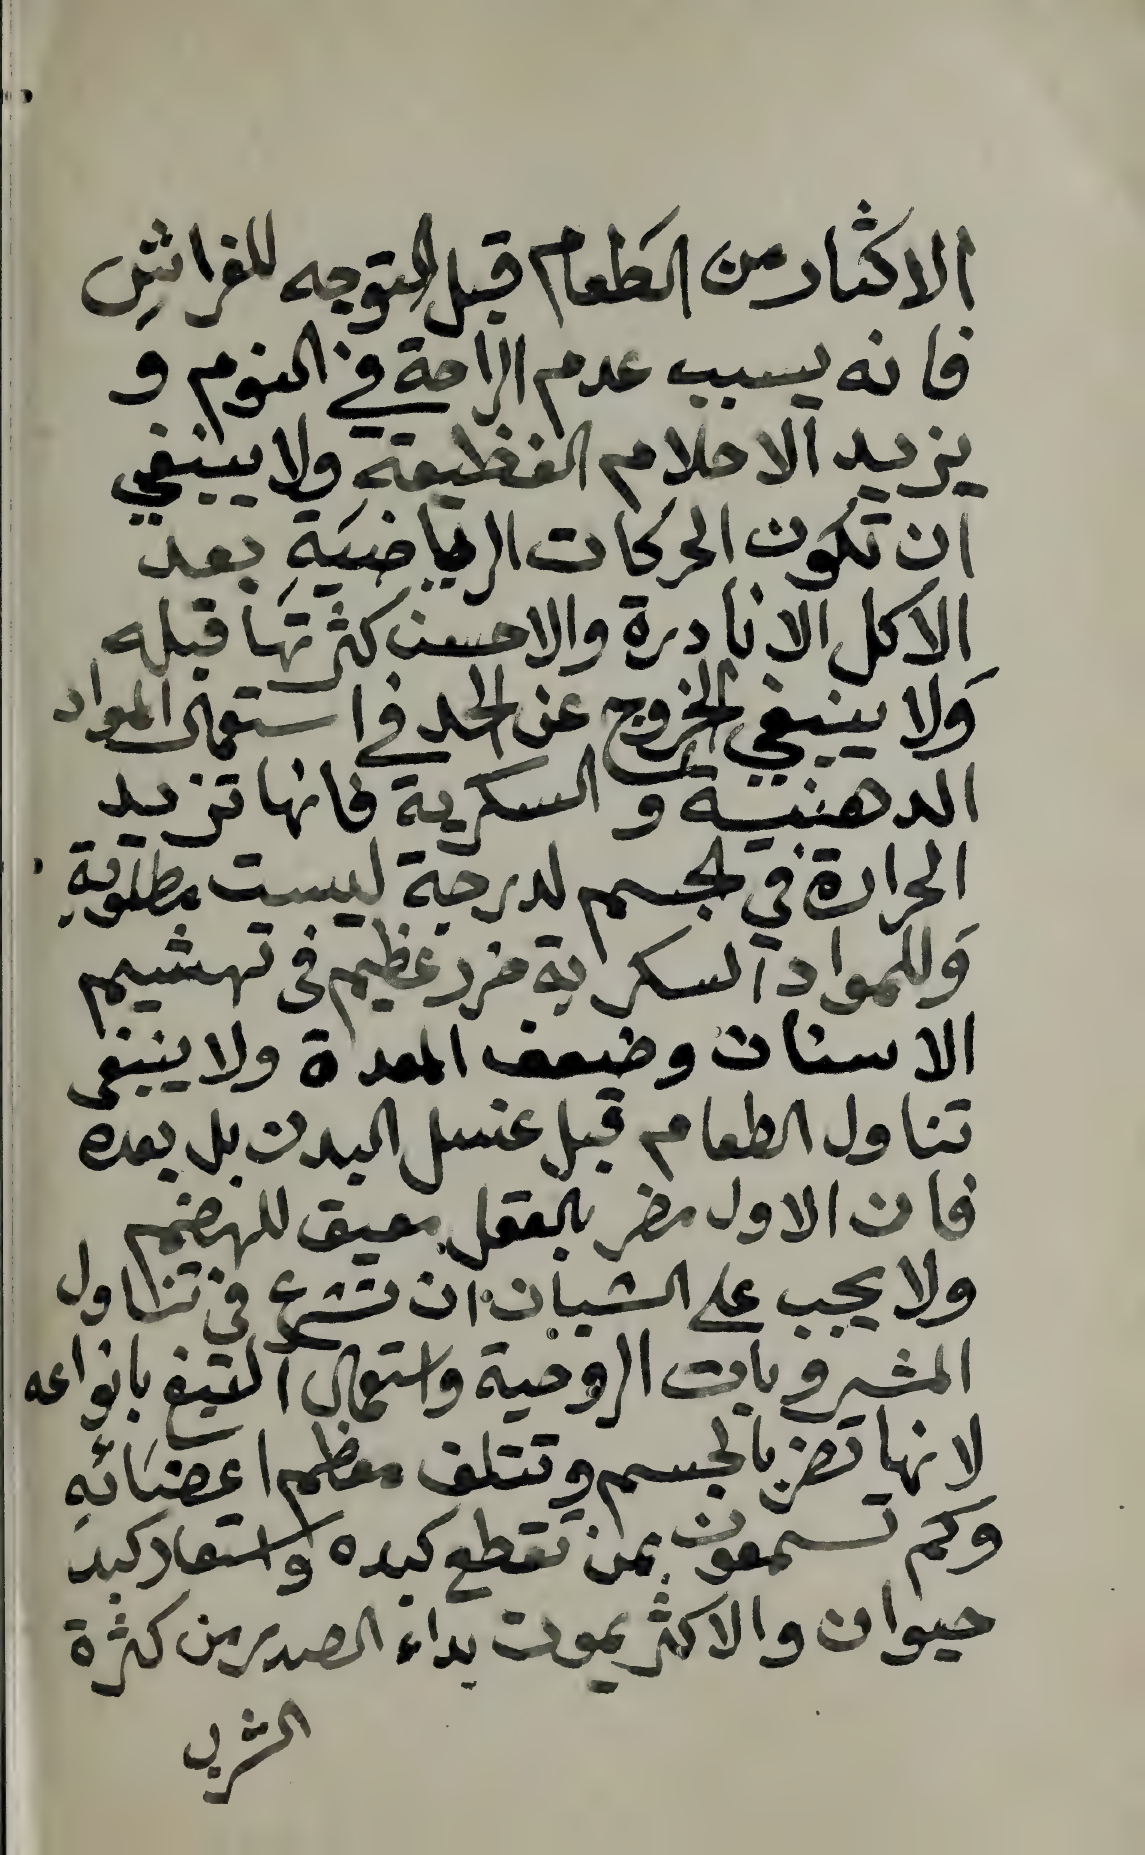 الاكثار من الطعام قبل التوجه للفراش
فانه يسبب عدم الراحة في النوم و
يزيد الاحلام الفظيعة ولا ينبغي
ان تكون الحركات الرياضية بعد
الاكل الا نادرة والاحسن كثرتها قبله
ولا ينبغي الخروج عن الحد في استعمال المواد
الدهنية والسكرية فانها تزيد
الحرارة في الجسم لدرجة ليست مطلوبة
وللمواد السكرية ضرر عظيم في تهشيم
الاسنان وضعف المعدة ولا ينبغي
تناول الطعام قبل غسل البدن بل بعده
فان الاول مضر بالعقل معيق للهضم
ولا يجب على الشبان ان تشرع في تناول
المشروبات الروحية واستعمال التبغ بانواعه
لانها تضر بالجسم وتتلف معظم اعضائه
وكم تسمعون بمن تقطع كبده واستعار كبد
حيوان والاكثر يموت بداء الصدر من كثرة
الشرب